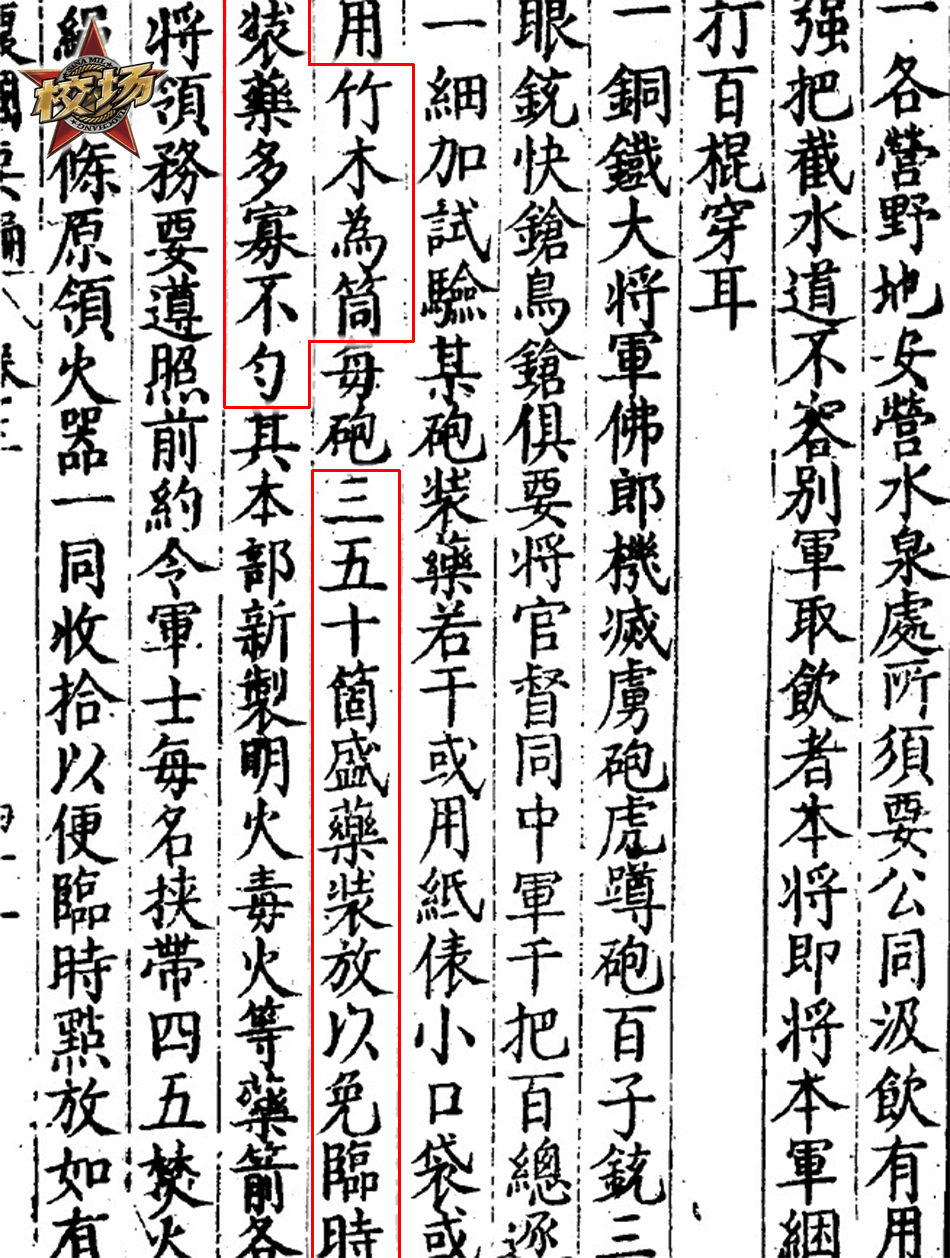 一各營野地安營水泉處所須要公同汲飲有用
强把截水道不容别軍取飲者本将即将本軍綑
打百棍穿耳
一銅鐵大将軍佛郎機滅虜砲虎蹲砲百子銃三
眼銃快鎗鳥鎗俱要将官督同中軍千把百總逐
一細加試驗某砲装藥若干或用紙俵小口袋或
用竹木為筒每砲三五十箇盛藥装放以免臨時
装藥多寡不匀其本部新製明火毒火等藥箭各
将領務要遵照前約令軍士每名挟帶四五焚火
條原領火器一同收拾以便臨時㸃放如有
校场